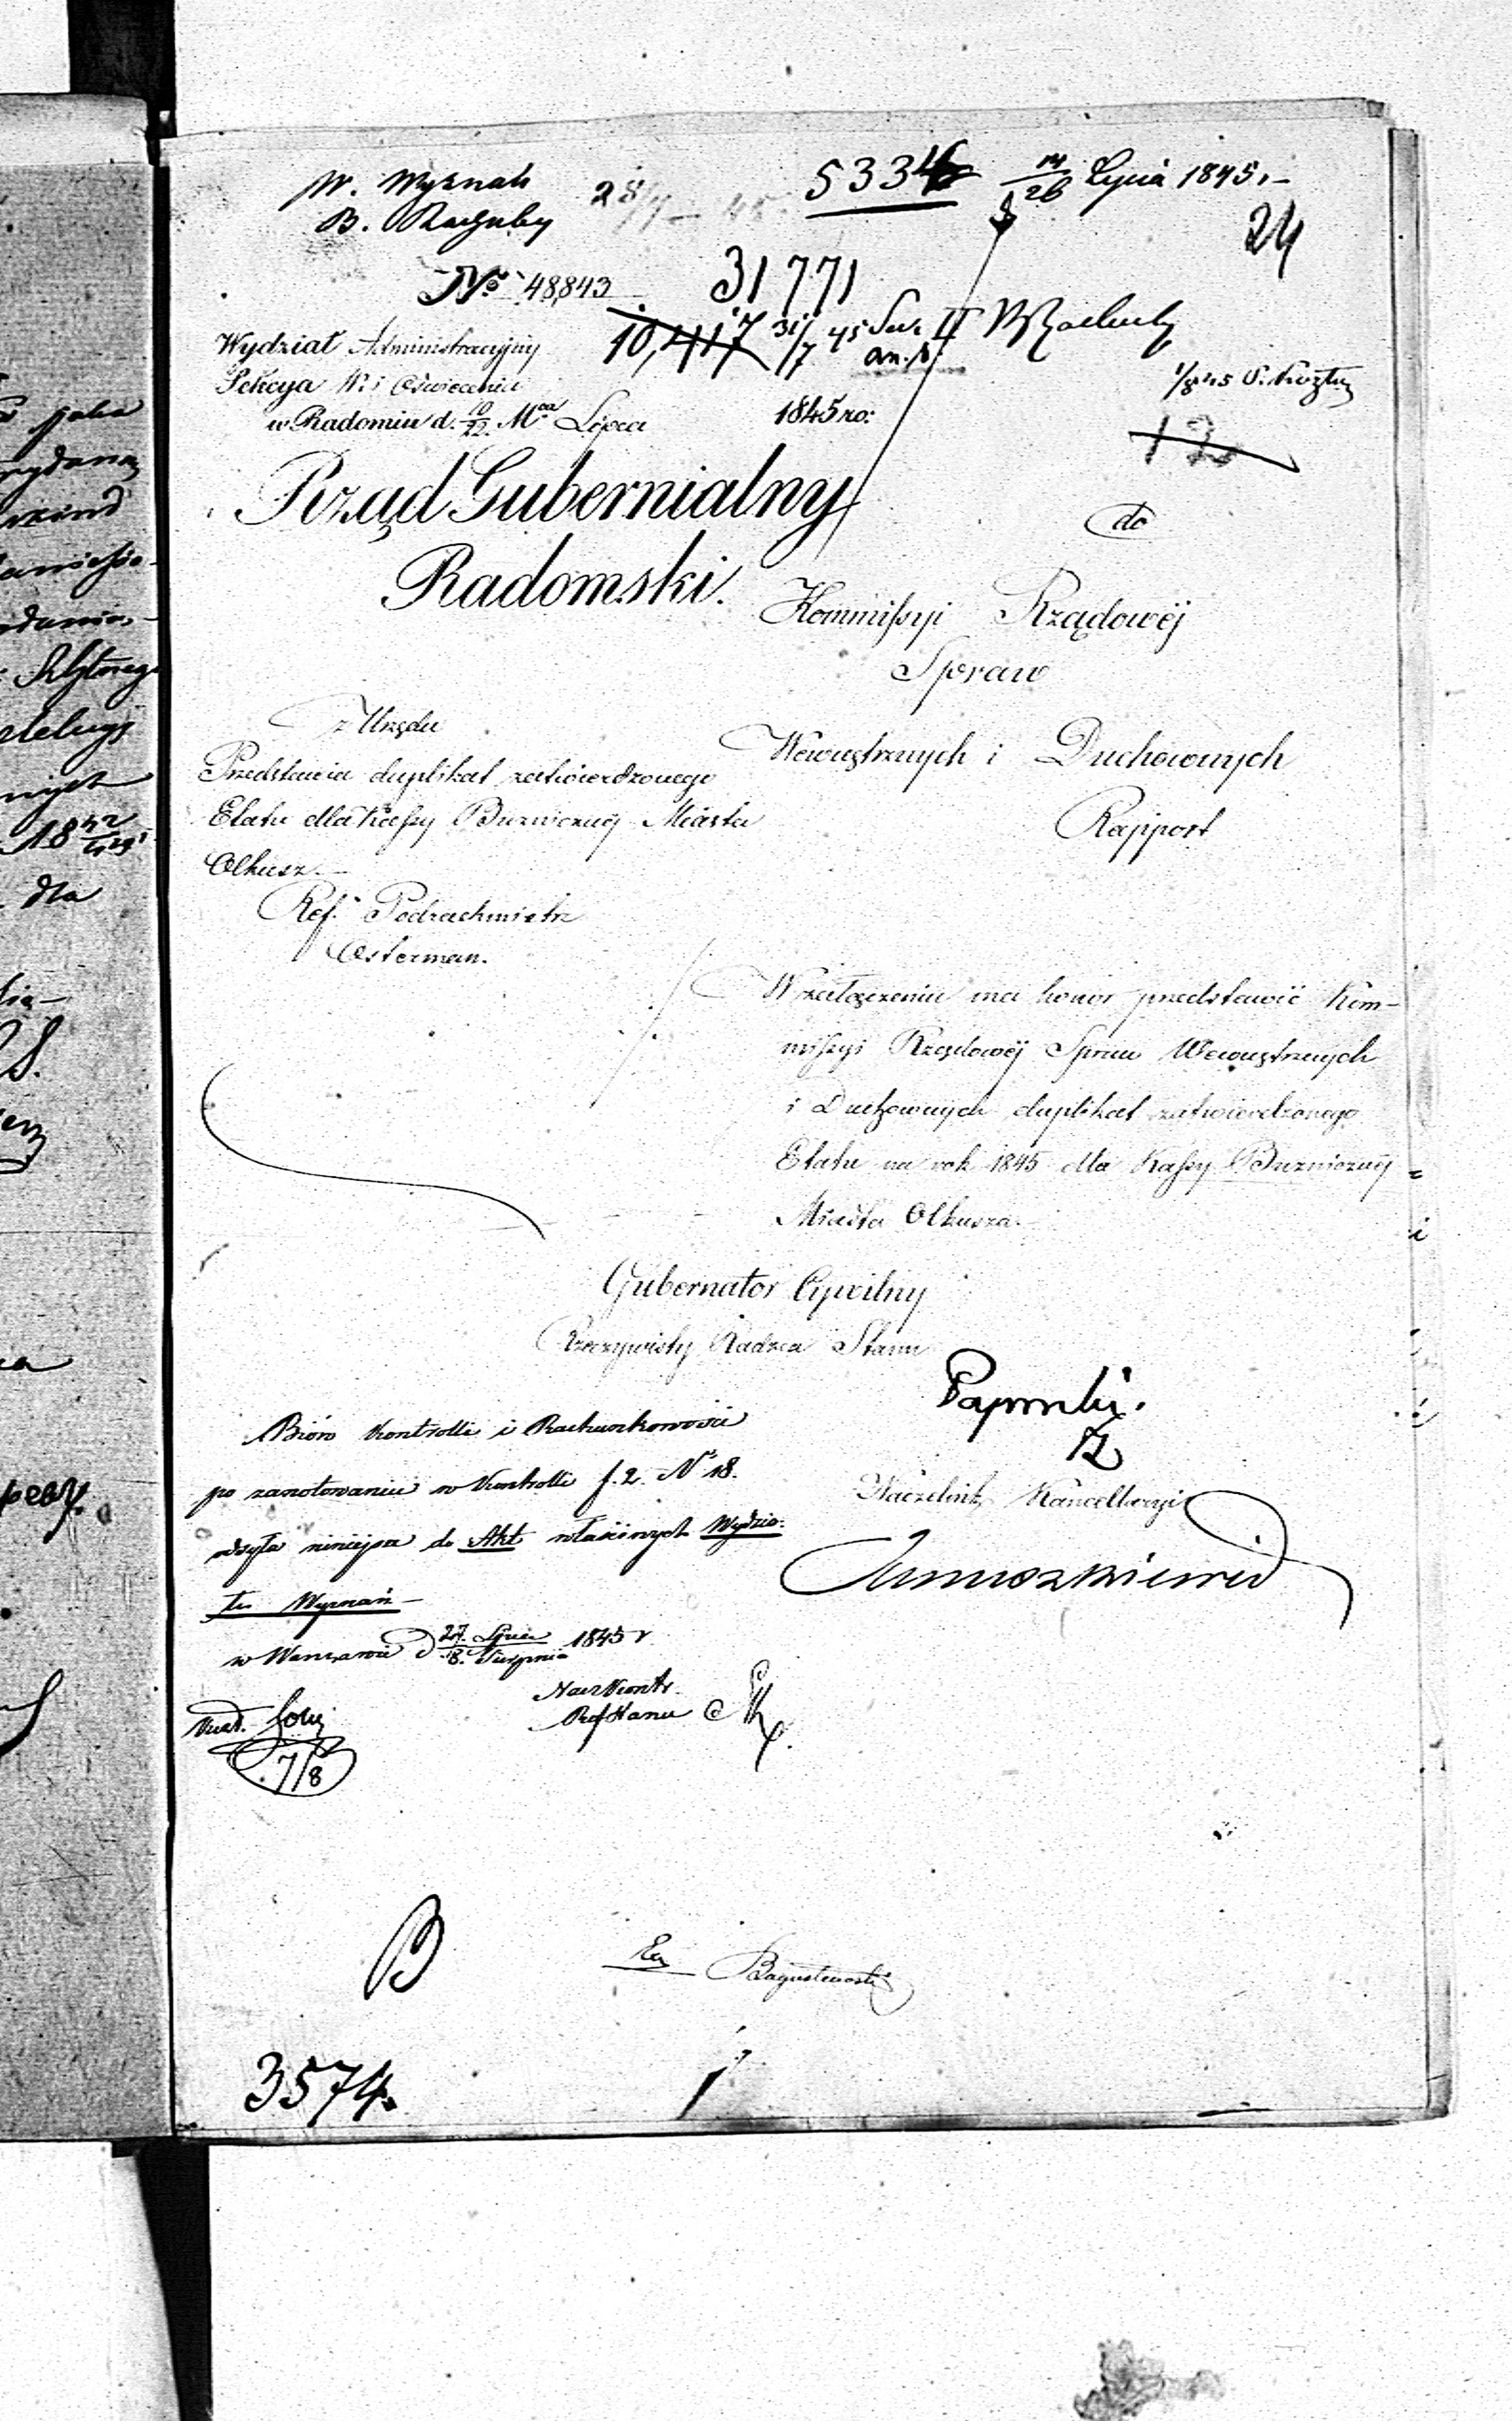 W. Wyznań
B. Rachuby
28/7 45
5334
14/26 Lipca 1845.
24
No 48,843
31771
10,417
31/7 45
Wydział Administracyjny
Sekcya W. i Oświecenia
w Radomiu d. 10/22 Mca Lipca 1845 ro:
12
Rząd Gubernialny
Radomski.
do
Kommissyi Rządowéj
Spraw
Wewnętrznych i Duchownych
Rapport
z Urzędu
Przedstawia duplikat zatwierdzonego
Etatu dla Kassy Bużnicznéj Miasta
Olkusz.
Ref. Podrachmistrz
Osterman.
W załączeniu ma honor przedstawić Kom-
missyi Rządowéj Spraw Wewnętrznych
i Duchownych duplikat zatwierdzonego
Etatu na rok 1845 dla Kassy Bużnicznéj
Miasta Olkusza.
Gubernator Cywilny
Rzeczywisty Radzca Stanu
Naczelnik Kancellaryi
Bióro Kontrolli i Rachunkowości
po zanotowaniu w Kontrolli f. 2. N 18.
odsyła niniejsze do Akt właściwych Wydzia-
łu Wyznań
w Warszawie d 27. Lipca/8. Sierpnia 1845 r
Nacz Kontr.
7/8
B
3574.